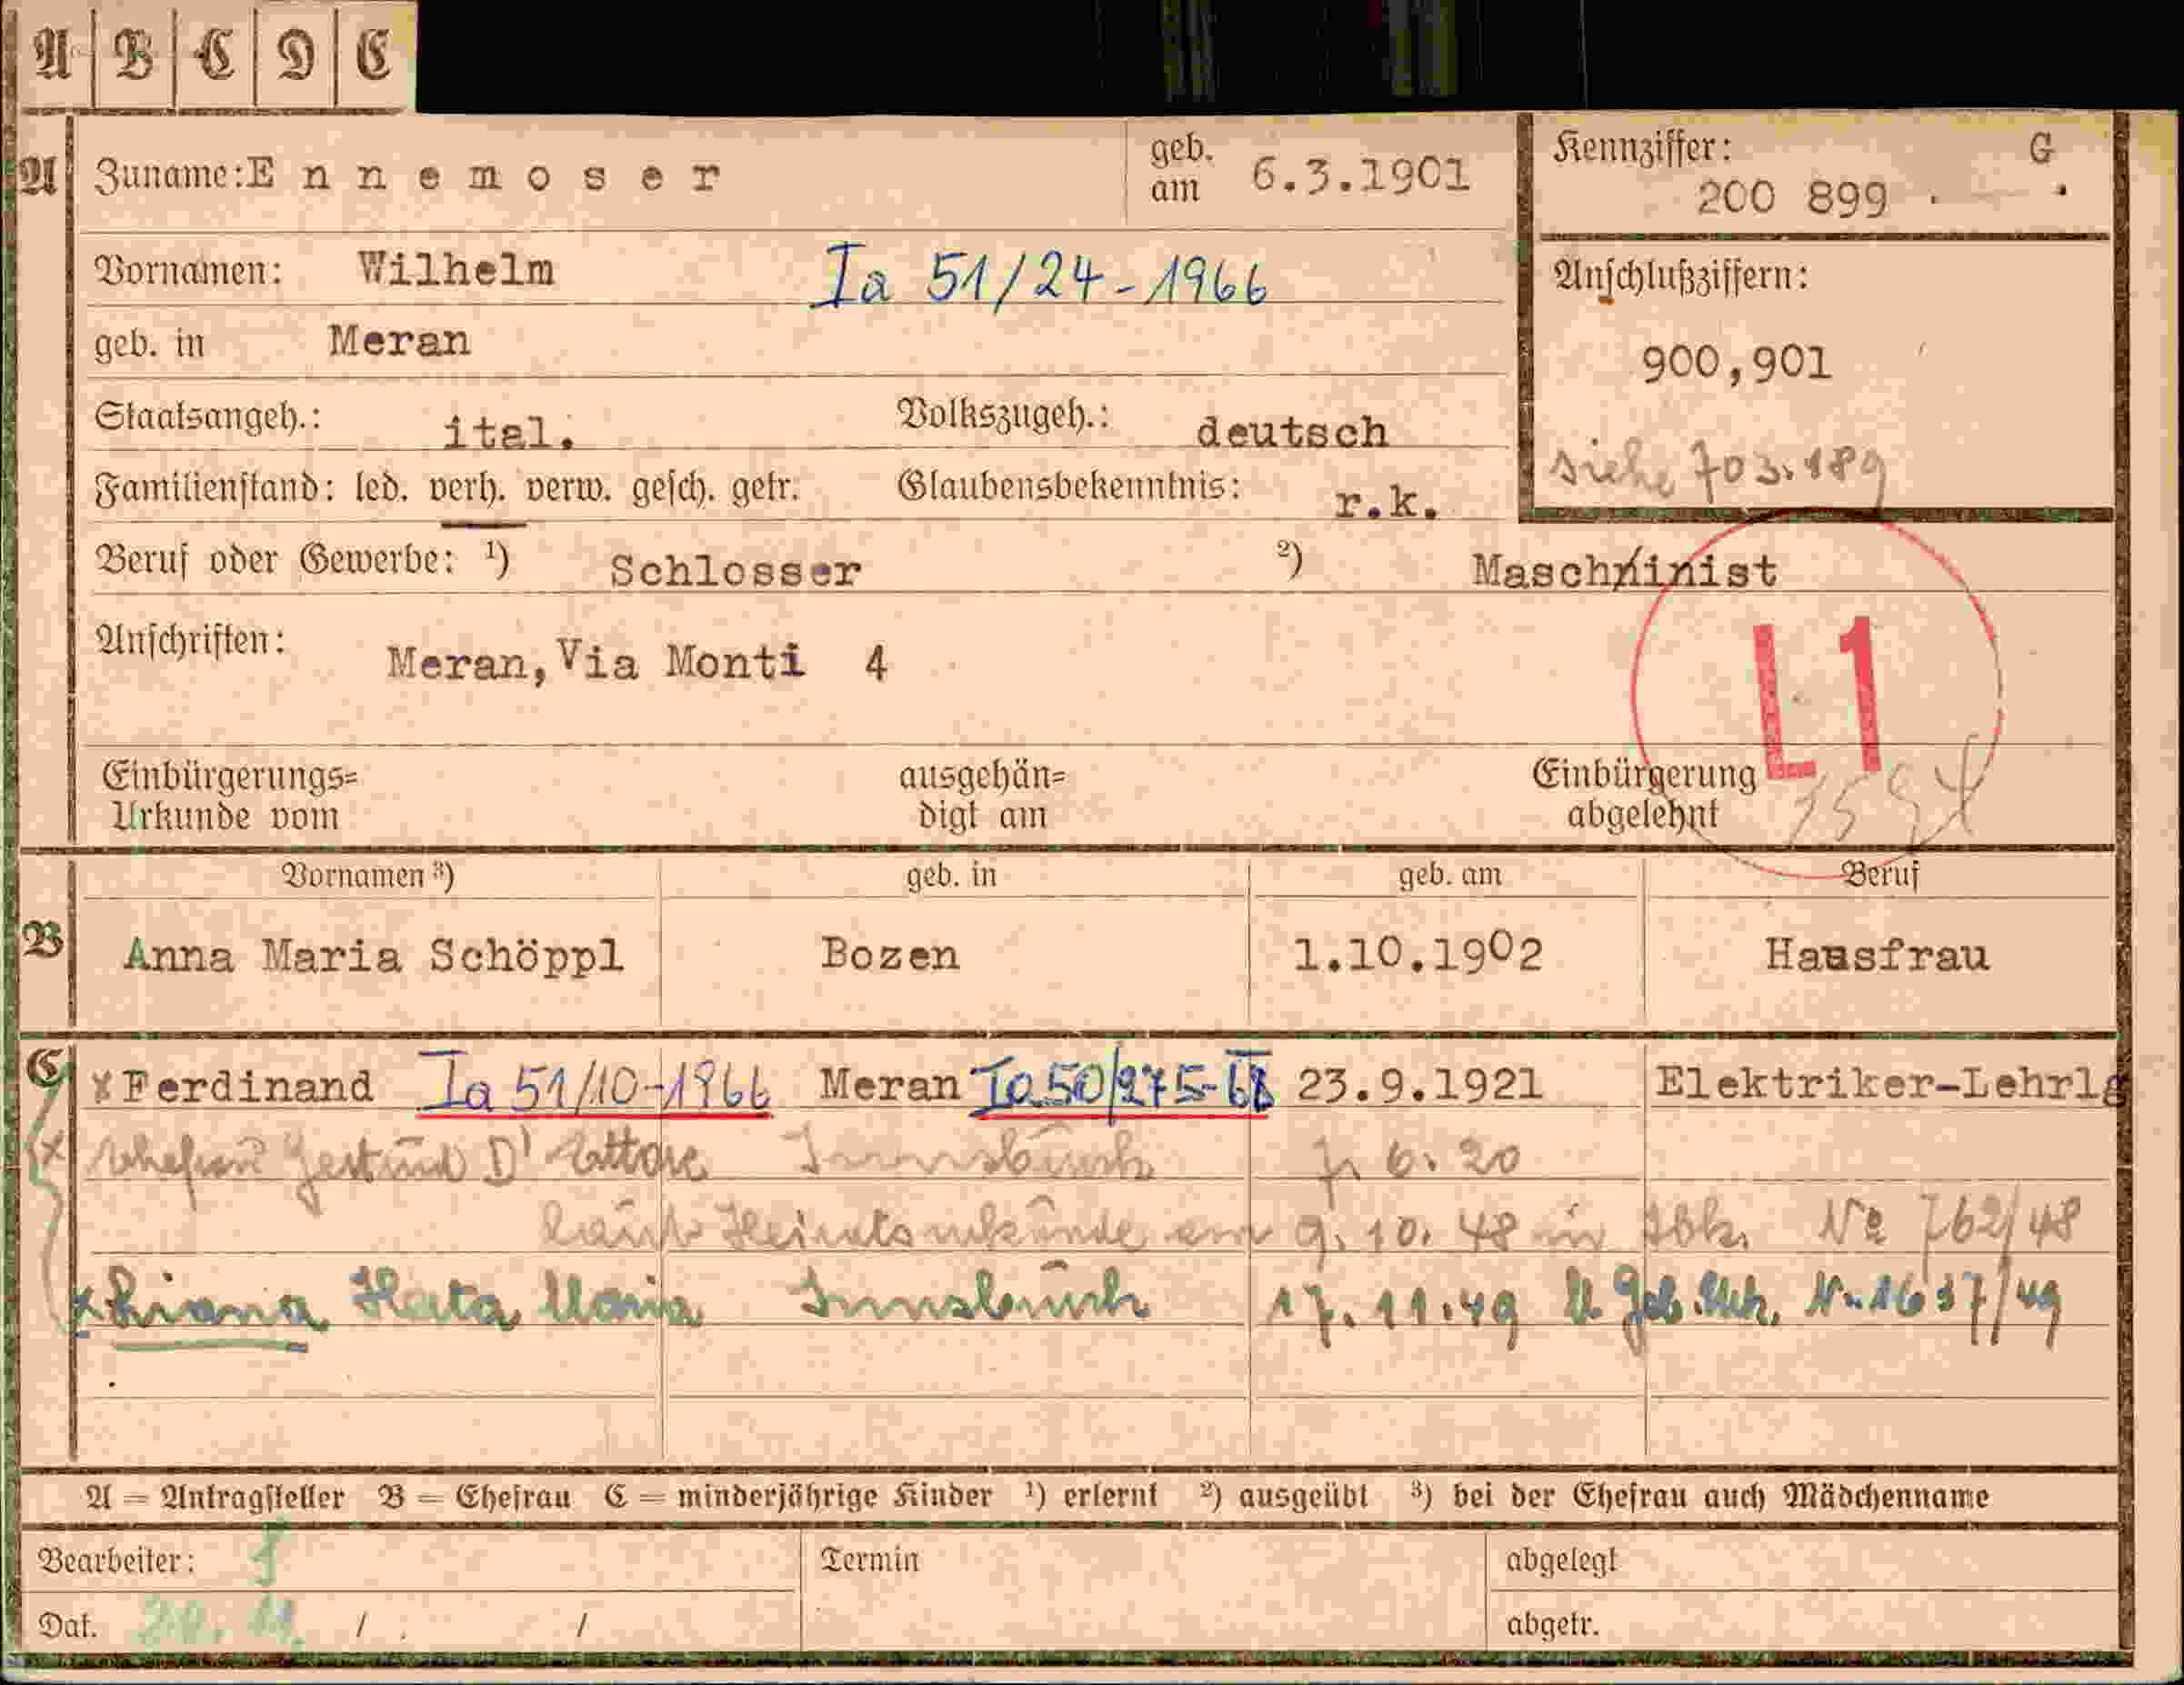 A B C D E
A Zuname: Ennemoser geb. am 6.3.1901 Kennziffer: G
200 899 .
Vornamen: Wilhelm Ia 51/24-1966 Anschlußziffern:
geb. in Meran 900,901
Staatsangeh.: ital. Volkszugeh.: deutsch siehe 703.189
Familienstand: led. verh. verw. gesch. getr. Glaubensbekenntnis: r.k.
Beruf oder Gewerbe: ¹) Schlosser ²) Maschinist
Anschriften: Meran, Via Monti 4 L1
Einbürgerungs= ausgehän= Einbürgerung
Urkunde vom digt am abgelehnt
Vornamen ³) geb. in geb. am Beruf
B Anna Maria Schöppl Bozen 1.10.1902 Hausfrau
C x Ferdinand Ia 51/10-1966 Meran Ia 50/275- 23.9.1921 Elektriker-Lehrlg
x Ehefrau Gertrud D'Ettore Innsbruck 7. 6. 20
laut Heiratsurkunde am 9. 10. 48 in Ibk. No 762/48
x Liana Herta Maria Innsbruck 17. 11. 49 Geb. Urk. Nr. 1637/49
A = Antragsteller B = Ehefrau C = minderjährige Kinder ¹) erlernt ²) ausgeübt ³) bei der Ehefrau auch Mädchenname
Bearbeiter: Termin abgelegt
Dat. / . / abgetr.